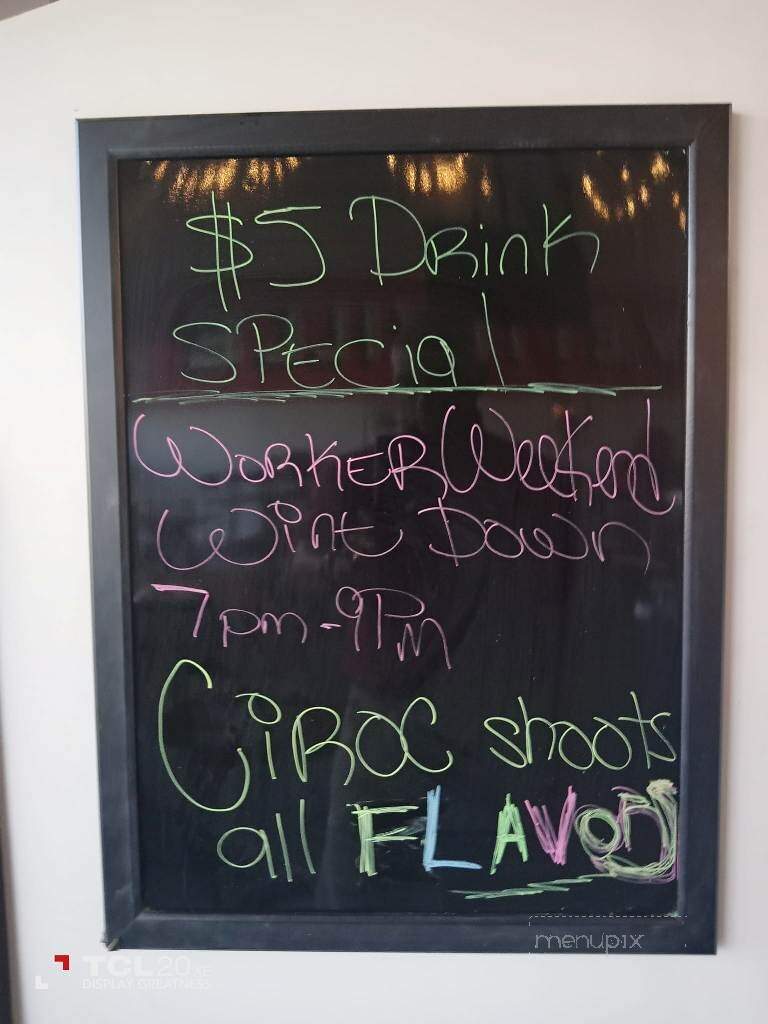 $5 Drink
Special
Worker Weekend
Wint Down
7pm-9pm
Ciroc shoots
all FLAVOR
menupix
TCL 20 XE
DISPLAY GREATNESS